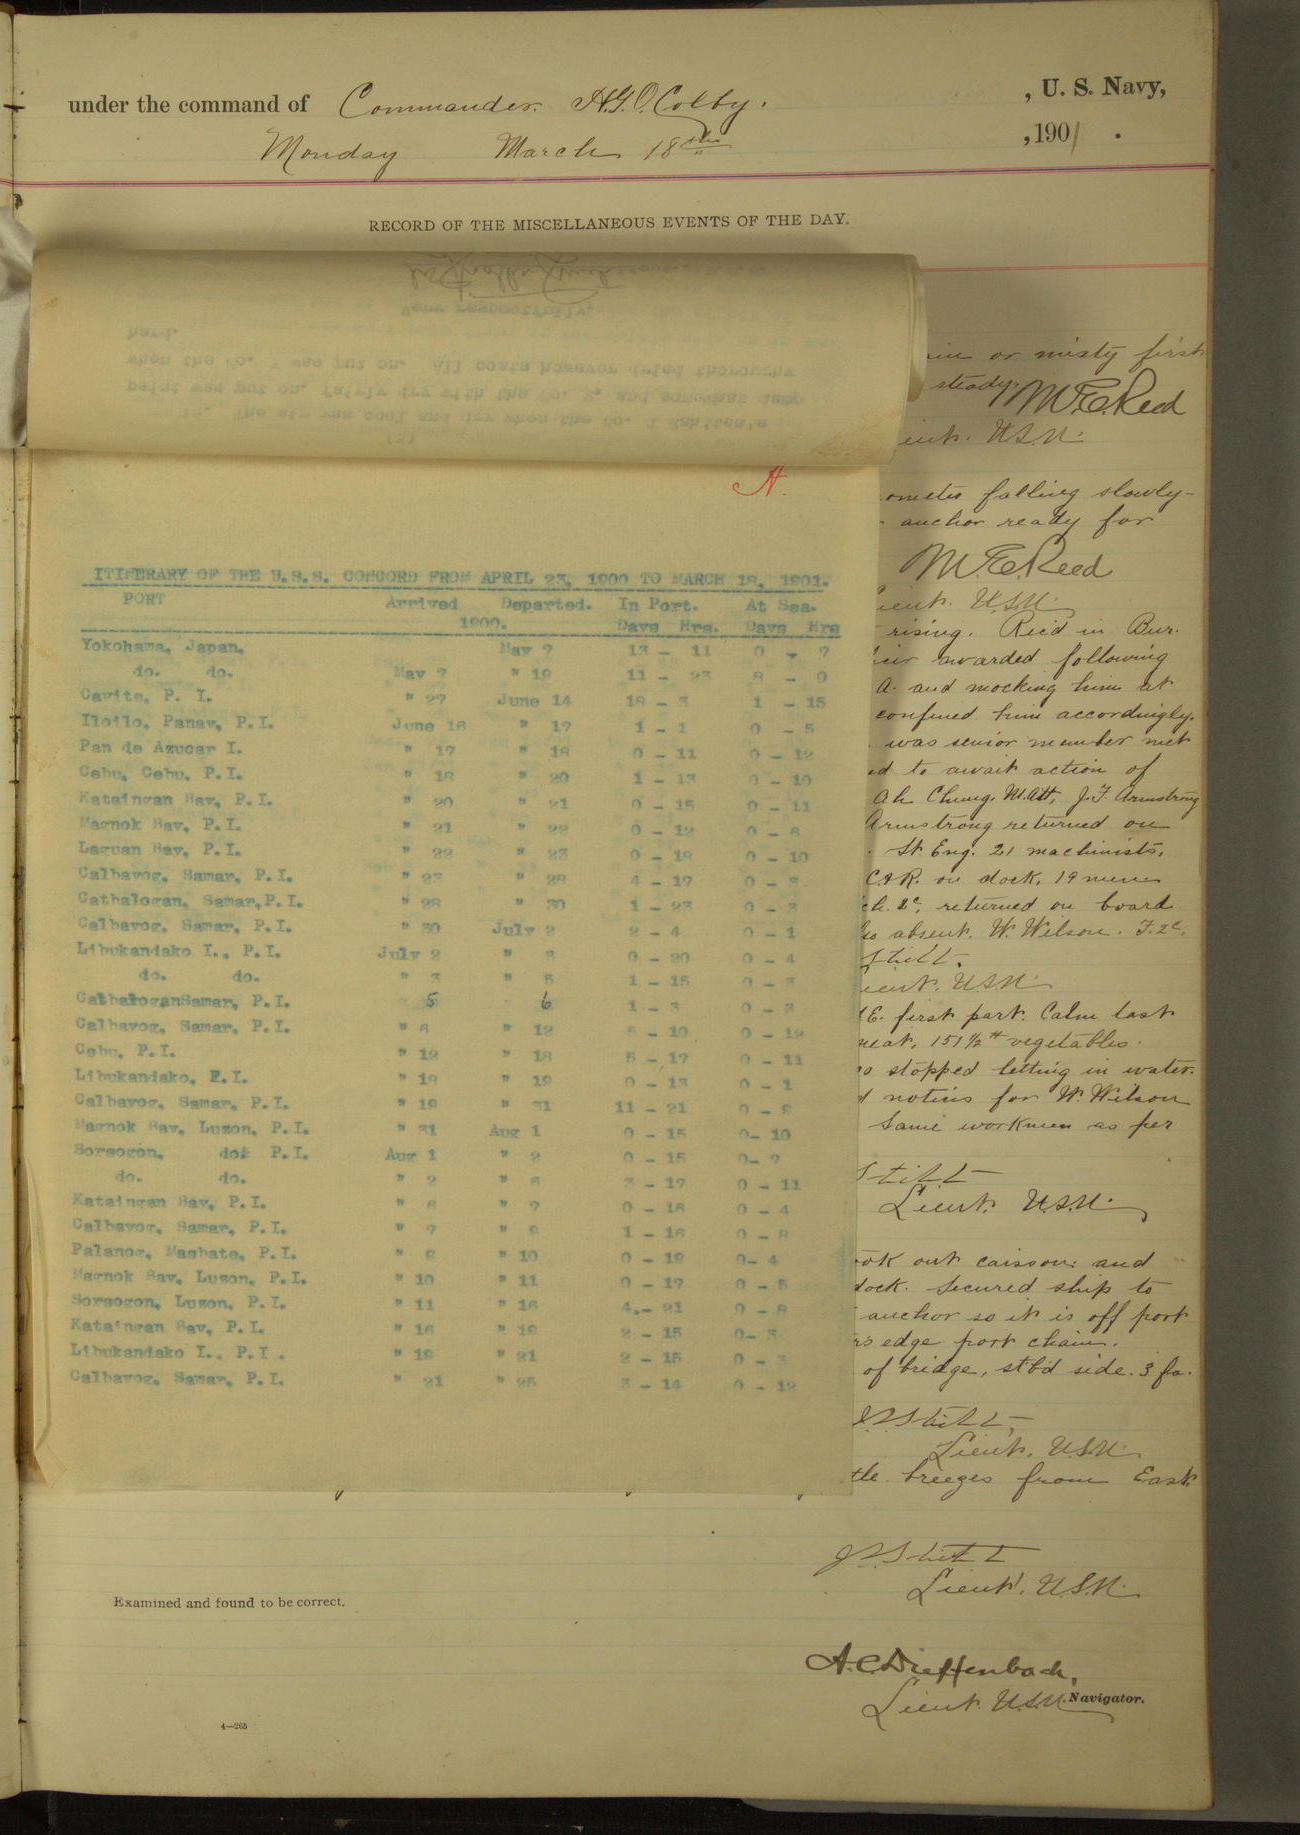 under the command of Commander H.G.O. Colby. , U. S. Navy,
Monday March 18th , 1901 .
RECORD OF THE MISCELLANEOUS EVENTS OF THE DAY.
or misty first
steady. M.E. Reed
U.S.N.
falling slowly-
anchor ready for
M.E. Reed
U.S.N.
rising. Rec'd in Bur.
awarded following
A. and mocking him at
confined him accordingly.
was senior member met
to await action of
Ah Chung. M.Att, J.F. Armstrong
Armstrong returned on
St. Eng. 21 machinists,
C&R. on dock. 19 men
2c, returned on board
absent. W. Wilson. F.2c.
U.S.N.
E. first part. Calm last
151 1/2 # vegetables.
stopped letting in water.
notices for W. Wilson
Same workmen as per
Stitt
Lieut. U.S.N.
out caisson and
dock. Secured ship to
anchor so it is off port
edge port chain.
of bridge, stb'd side. 3 fa.
Stitt,
Lieut. U.S.N.
breezes from East
Stitt
Lieut. U.S.N.
A.
ITINERARY OF THE U.S.S. CONCORD FROM APRIL 23, 1900 TO MARCH 18, 1901.
PORT Arrived Departed. In Port. At Sea.
1900. Days Hrs. Days Hrs
Yokohama, Japan, May 7 13 - 11 0 - 7
do. do. May 7 " 19 11 - 23 8 - 0
Cavite, P. I. " 27 June 14 18 - 3 1 - 15
Iloilo, Panay, P.I. June 16 " 17 1 - 1 0 - 5
Pan de Azucar I. " 17 " 18 0 - 11 0 - 12
Cebu, Cebu, P.I. " 18 " 20 1 - 13 0 - 10
Kataingan Bay, P.I. " 20 " 21 0 - 15 0 - 11
Magnok Bay, P.I. " 21 " 22 0 - 12 0 - 6
Laguan Bay, P.I. " 22 " 23 0 - 18 0 - 10
Calbayog, Samar, P.I. " 23 " 28 4 - 17 0 -
Cathalogan, Samar,P.I. " 28 " 30 1 - 23 0 - 3
Calbayog, Samar, P.I. " 30 July 2 2 - 4 0 - 1
Libukandako I., P.I. July 2 " 3 0 - 20 0 - 4
do. do. " 3 " 5 1 - 15 0 - 3
CatbaloganSamar, P.I. 5 6 1 - 3 0 - 3
Calbayog, Samar, P.I. " 6 " 12 5 - 10 0 - 12
Cebu, P.I. " 12 " 18 5 - 17 0 - 11
Libukandako, P.I. " 18 " 19 0 - 13 0 - 1
Calbayog, Samar, P.I. " 19 " 31 11 - 21 0 - 8
Magnok Bay, Luzon, P.I. " 31 Aug 1 0 - 15 0- 10
Sorsogon, do. P.I. Aug 1 " 2 0 - 15 0-
do. do. " 2 " 6 3 - 17 0 - 11
Kataingan Bay, P.I. " 6 " 7 0 - 16 0 - 4
Calbayog, Samar, P.I. " 7 " 1 - 16 0 - 8
Palanog, Masbate, P.I. " " 10 0 - 19 0- 4
Magnok Bay, Luzon, P.I. " 10 " 11 0 - 17 0 - 5
Sorsogon, Luzon, P.I. " 11 " 16 4.- 21 0 - 8
Kataingan Bay, P.I. " 16 " 19 2 - 15 0- 3
Libukandako I., P.I. " 19 " 21 2 - 15 0 - 3
Calbayog, Samar, P.I. " 21 " 25 3 - 14 0 - 12
Examined and found to be correct.
A.C. Dieffenbach,
Lieut. U.S.N. Navigator.
4—265